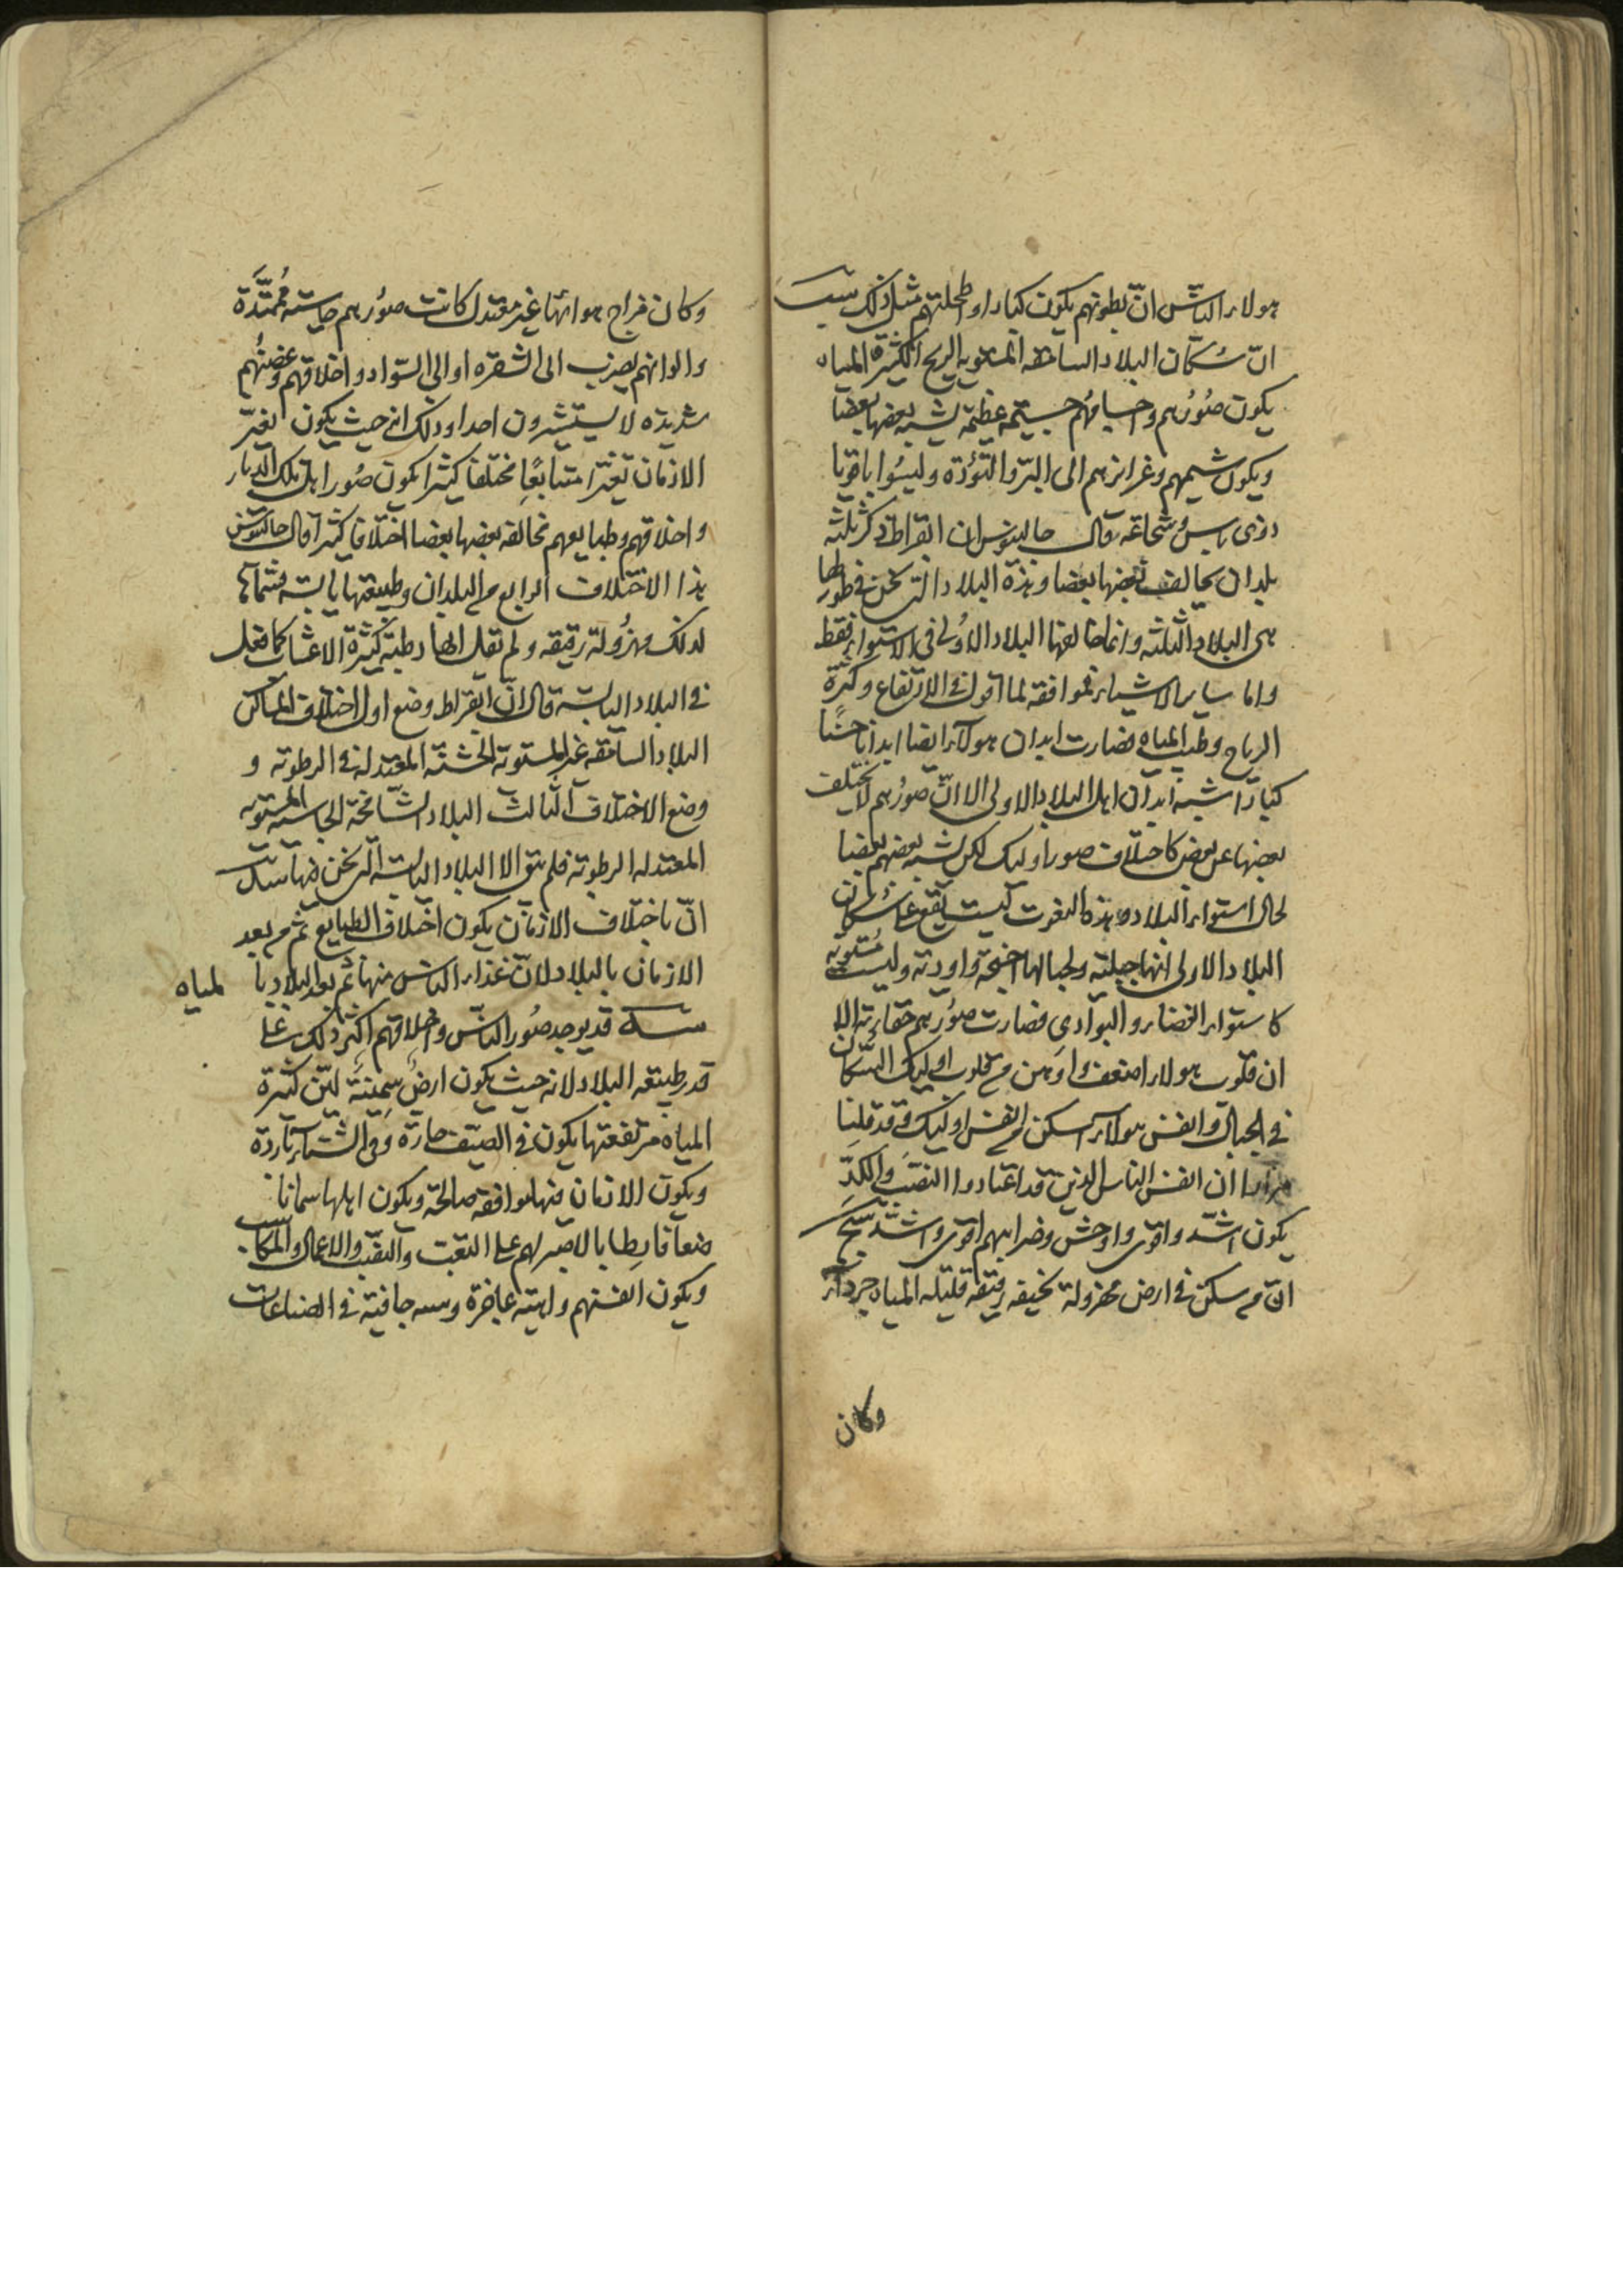 هولاء الناس ان بطونهم يكون كبارا واطحلتهم مثل ذلك
ان سكان البلاد السامقه المستويه الريح الكثيرة المياه
يكون صورهم واجسامهم جسيمه عظيمه يشبه بعضها بعضا
ويكون شيمهم وغرائزهم الى البر والتؤدة وليسوا باقويا
ذوى باس وشجاعه وقال جالينوس ان ابقراط ذكر ثلثه
بلدان يخالف بعضها بعضا وهذه البلاد التى نحن فى
هى البلاد الثلثه وانما خالفها البلاد الاولى فى الاستواء فقط
واما ساير الاشياء فموافقه لما اقول فى الارتفاع وكثرة
الرياح وطيب المياه فصارت ابدان هولاء ايضا ابدانا
كبارا شبه ابدان اهل البلاد الاولى الا ان صورهم لا يختلف
بعضها عن بعض كاختلاف صور اوليك لكن يشبه بعضهم بعضا
لحال استواء البلاد وهذه النعوت ليست يقع على سكان
البلاد الاولى انها جبلية ولجبالها اجنحة واودية وليست مستويه
كاستواء القصار والبوادى فصارت صورهم الا
ان قلوب هولاء اضعف واوهن من قلوب اوليك السكان
فى الجبال وانفس هولاء اسكن من انفس اوليك وقد قلنا
مرارا ان انفس الناس الذين قد اعتادوا النصب والكد
يكون اشد واقوى واوحش وضرايبهم اقوى واشد
ان من سكن فى ارض مهزولة نحيفه رقيقه قليله المياه جرداء
وكان
وكان مزاج هوائها غير معتدل كانت صورهم جاسيه ممتدة
والوانهم يضرب الى الشقره او الى السواد واخلاقهم وغضبهم
شديده لا يستشيرون احدا وذلك انه حيث يكون تغير
الازمان تغيرا متتابعا مختلفا كثيرا تكون صور اهل تلك الديار
واخلاقهم وطبايعهم مخالفه بعضها بعضا اختلافا كثيرا قال جالينوس
هذا الاختلاف الرابع من البلدان وطبيعتها يابسه فسماها
لذلك مهزولة رقيقه ولم تقل انها رطبه كثيرة الاعشاب كما فعل
فى البلاد اليابسه قال ان ابقراط وضع اول اختلاف المساكن
البلاد السامقه غير المستويه الخشنه المعتدله فى الرطوبه و
وضع الاختلاف الثالث البلاد الشامخة الجاسيه المستويه
المعتدله الرطوبه فلم يبق الا البلاد اليابسه التى نحن فيها
ان باختلاف الازمان يكون اختلاف الطبايع ثم من بعد
الازمان بالبلاد لان غذاء الناس منها ثم بعد البلاد با لمياه
قد يوجد صور الناس واخلاقهم اكثر ذلك على
قدر طبيعه البلاد لانه حيث يكون ارض سمينة لين كثيرة
المياه مرتفعتها يكون فى الصيف حارة وفى الشتاء باردة
ويكون الازمان فيها موافقه صالحة ويكون اهلها سمانا
ضعافا رطابا لا صبر لهم على التعب والنصب والاعمال والمكاسب
ويكون انفسهم واهيه عاجزة جافية فى الصناعات